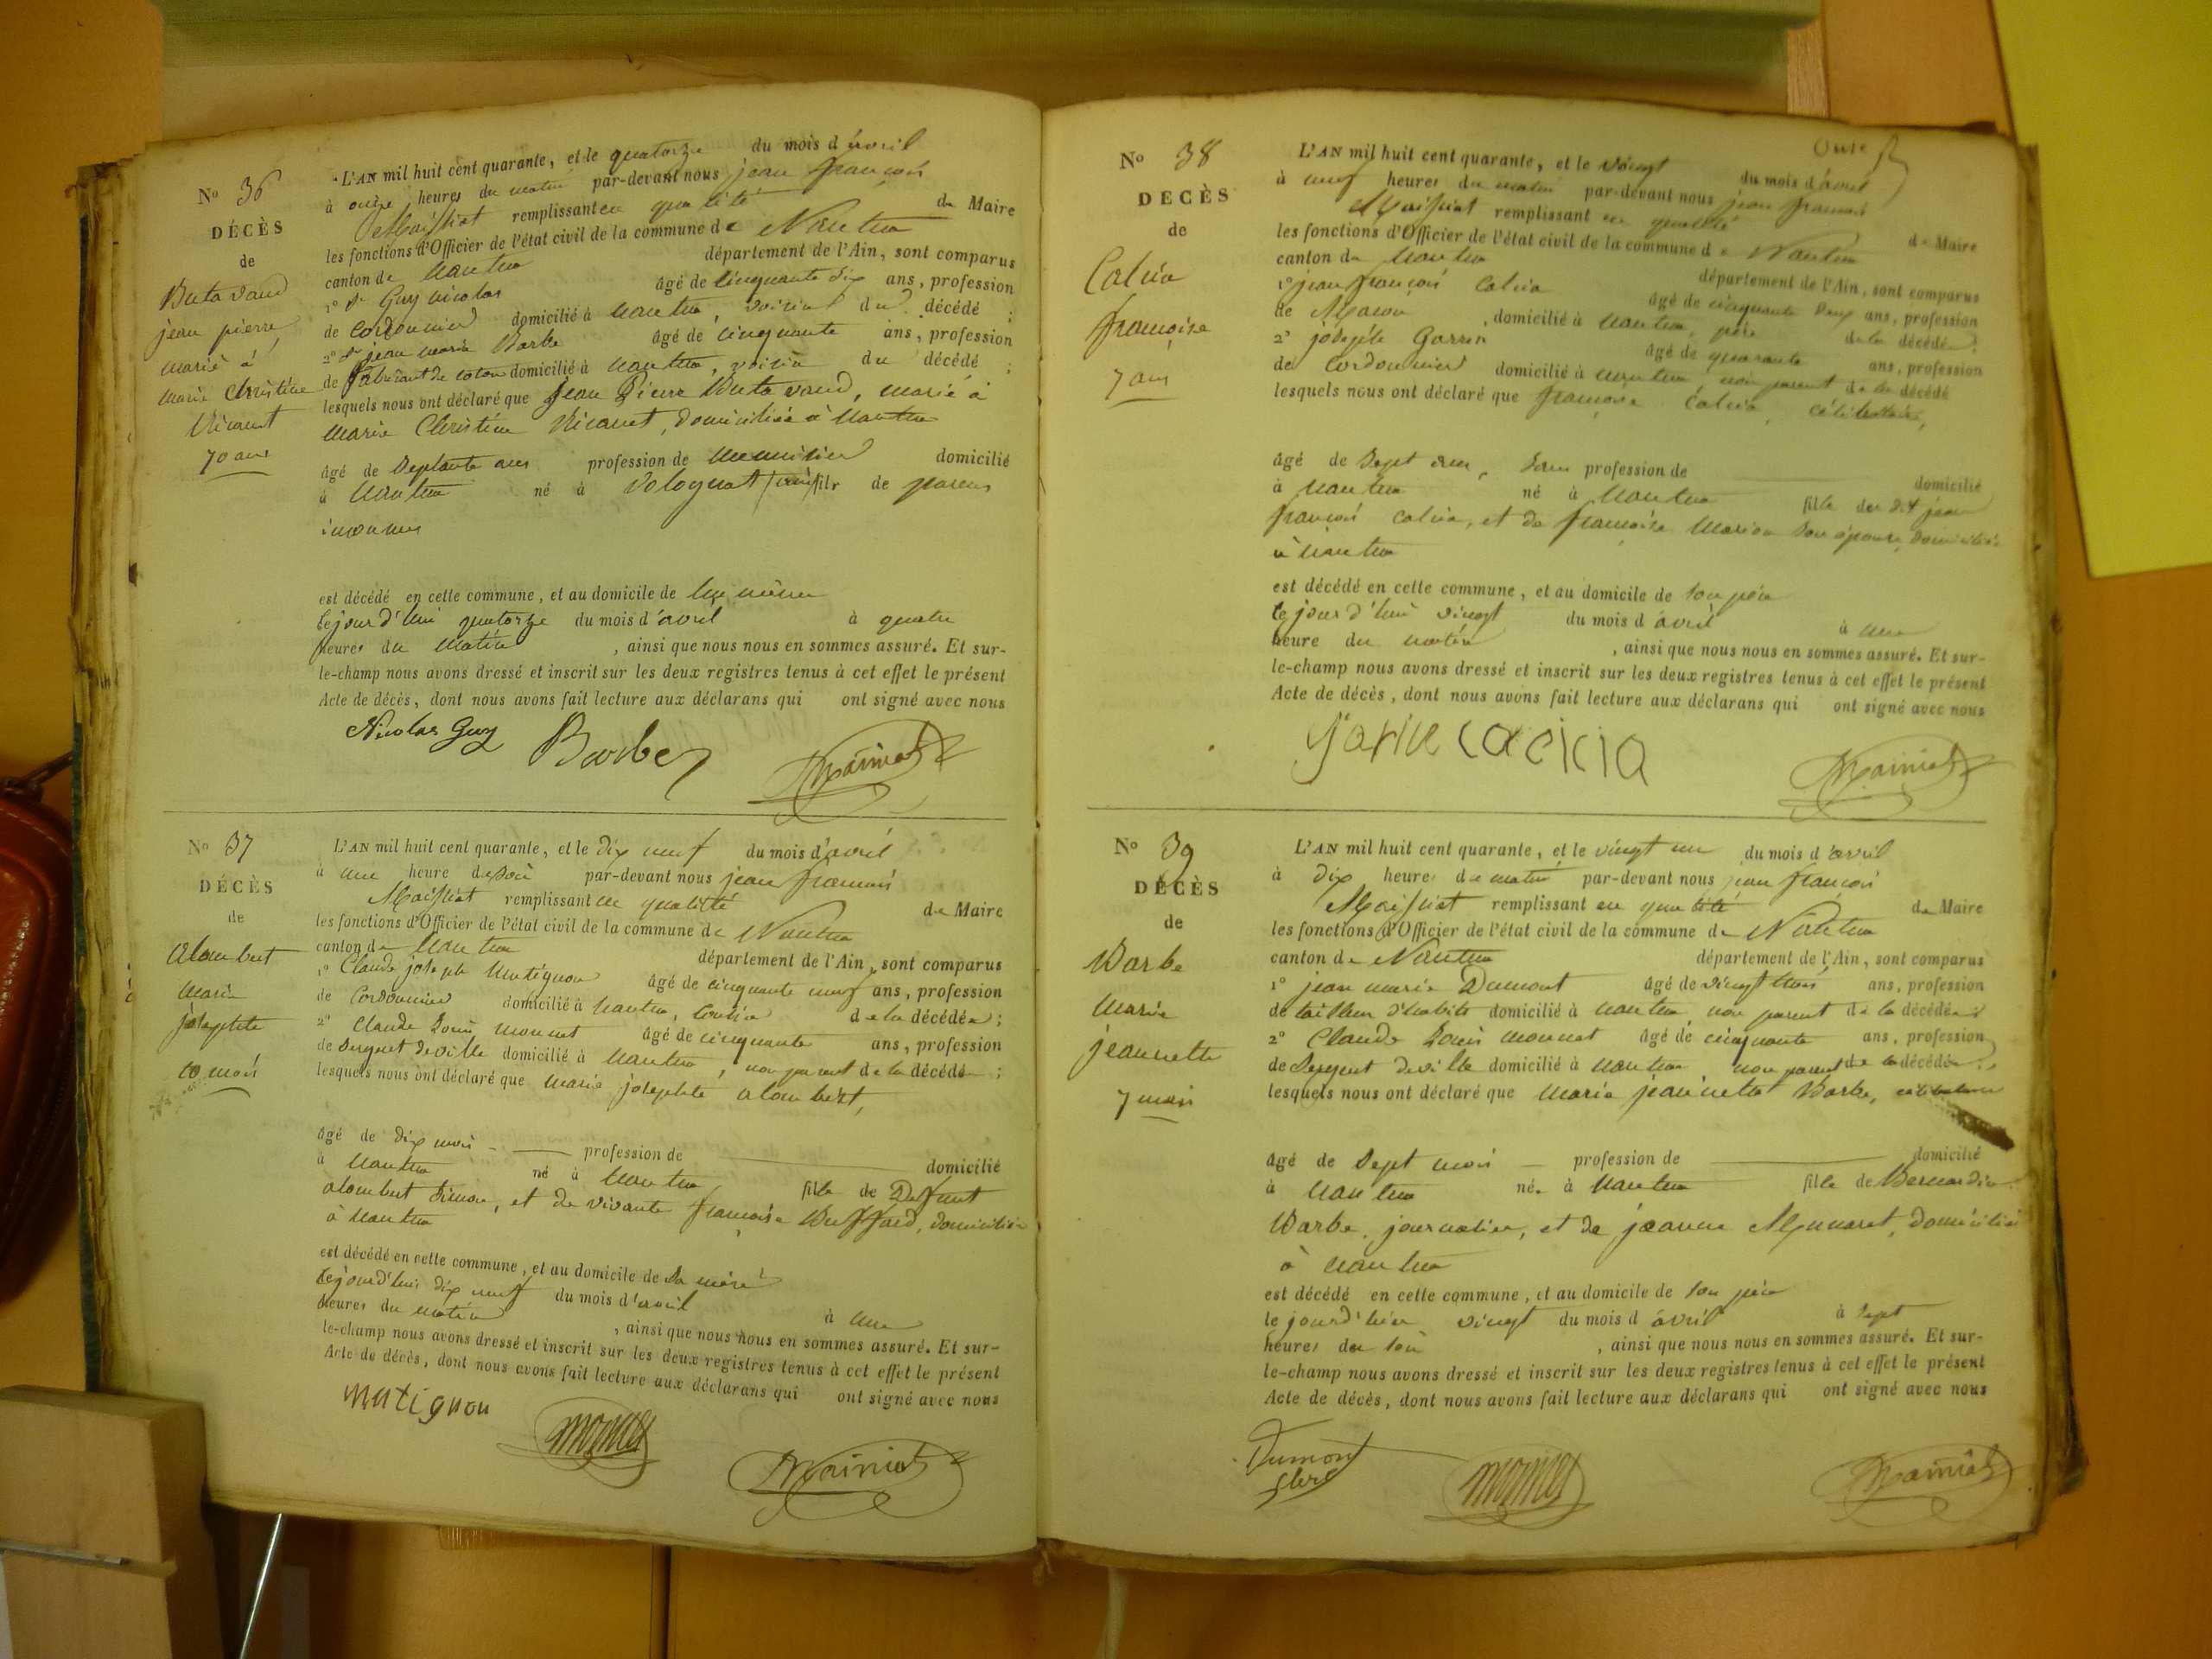 No 36
DÉCÈS
de
Butavand
jean pierre,
marié à
marie Christine
Nicanet
70 ans
L'AN mil huit cent quarante, et le quatorze du mois d'avril
à onze heures du matin par-devant nous jean françois
Maissiat remplissant en qualité de Maire
les fonctions d'Officier de l'état civil de la commune de Nantua
canton de Nantua département de l'Ain, sont comparus
1° Sr Guy nicolas âgé de Cinquante dix ans, profession
de Cordonnier domicilié à nantua, voisin du décédé ;
2° Sr jean marie Barbe âgé de Cinquante ans, profession
de fabricant de coton domicilié à nantua, voisin du décédé ;
lesquels nous ont déclaré que Jean Pierre Butavand, marié à
Marie Christine Nicanet, domiciliée à Nantua
âgé de Septante ans profession de Menuisier domicilié
à Nantua né à Volognat (ain) fils de parens
inconnus
est décédé en cette commune, et au domicile de lui même
Cejourd'hui quatorze du mois d'avril à quatre
heures du Matin , ainsi que nous nous en sommes assuré. Et sur-
le-champ nous avons dressé et inscrit sur les deux registres tenus à cet effet le présent
Acte de décès, dont nous avons fait lecture aux déclarans qui ont signé avec nous
Nicolas Guy Barbe Maissiat
No 37
DÉCÈS
de
alombert
Marie
josephte
10 mois
L'AN mil huit cent quarante, et le dix neuf du mois d'avril
à une heure du soir par-devant nous jean françois
Maissiat remplissant en qualité de Maire
les fonctions d'Officier de l'état civil de la commune de Nantua
canton de Nantua département de l'Ain, sont comparus
1° Claude joseph Mutignon âgé de cinquante neuf ans, profession
de Cordonnier domicilié à nantua, Cousin de la décédée ;
2° Claude Louis monnet âgé de cinquante ans, profession
de Sergent de ville domicilié à Nantua, non parent de la décédée ;
lesquels nous ont déclaré que Marie josephte alombert,
âgé de dix mois profession de domicilié
à Nantua né à Nantua, fille de Defunt
alombert Simon, et de vivante françoise Buffard, domiciliée
à Nantua
est décédé en cette commune, et au domicile de Sa mère
Cejourd'hui dix neuf du mois d'avril à une
heures du matin , ainsi que nous nous en sommes assuré. Et sur-
le-champ nous avons dressé et inscrit sur les deux registres tenus à cet effet le présent
Acte de décès, dont nous avons fait lecture aux déclarans qui ont signé avec nous
Mutignon monnet Maissiat
No 38
DECÈS
de
Calcia
françoise
7 ans
L'AN mil huit cent quarante, et le vingt du mois d'avril
à neuf heures du matin par-devant nous jean françois
Maissiat remplissant en qualité de Maire
les fonctions d'Officier de l'état civil de la commune de Nantua
canton de Nantua département de l'Ain, sont comparus
1° jean françois Calcia âgé de cinquante deux ans, profession
de Maçon , domicilié à Nantua, père de la décédée ;
2° joseph Garin âgé de quarante ans, profession
de Cordonnier domicilié à nantua, non parent de la décédé
lesquels nous ont déclaré que françoise Calcia, célibataire,
âgé de Sept ans, Sans profession de domicilié
à Nantua né à Nantua fille du dit jean
françois Calcia, et de françoise Marion son épouse, domiciliés
à Nantua
est décédé en cette commune, et au domicile de son père
Cejourd'hui vingt du mois d avril à une
heure du matin , ainsi que nous nous en sommes assuré. Et sur-
le-champ nous avons dressé et inscrit sur les deux registres tenus à cet effet le présent
Acte de décès, dont nous avons fait lecture aux déclarans qui ont signé avec nous
Maissiat
No 39
DÉCÈS
de
Barbe
Marie
jeannette
7 mois
L'AN mil huit cent quarante, et le vingt un du mois d'avril
à dix heures du matin par-devant nous jean françois
Maissiat remplissant en qualité de Maire
les fonctions d'Officier de l'état civil de la commune de Nantua
canton de Nantua département de l'Ain, sont comparus
1° jean marie Dumont âgé de vingt trois ans, profession
de tailleur d'habits domicilié à nantua non parent de la décédée ;
2° Claude Louis monnet âgé de cinquante ans, profession
de Sergent de ville domicilié à nantua non parent de la décédée ;
lesquels nous ont déclaré que Marie jeannette Barbe, célibataire
âgé de Sept mois profession de domicilié
à Nantua né à Nantua fille de Bernardin
Barbe, journalier, et de jeanne Munaret, domiciliés
à Nantua
est décédé en cette commune, et au domicile de son père
le jourd'hier vingt du mois d avril à Sept
heures du soir , ainsi que nous nous en sommes assuré. Et sur-
le-champ nous avons dressé et inscrit sur les deux registres tenus à cet effet le présent
Acte de décès, dont nous avons fait lecture aux déclarans qui ont signé avec nous
Dumont monnet Maissiat